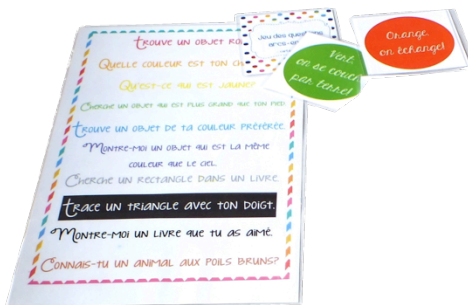 Trouve un objet
Quelle couleur est ton
Qu'est-ce qui est jaune?
Cherche un objet qui est plus grand que ton pied
Trouve un objet de ta couleur préférée.
Montre-moi un objet qui est la même
couleur que le ciel.
Cherche un rectangle dans un livre.
Trace un triangle avec ton doigt.
Montre-moi un livre que tu as aimé.
Connais-tu un animal aux poils bruns?
Jeu des questions
Vert,
on se couche
par terre!
Orange,
on échange!